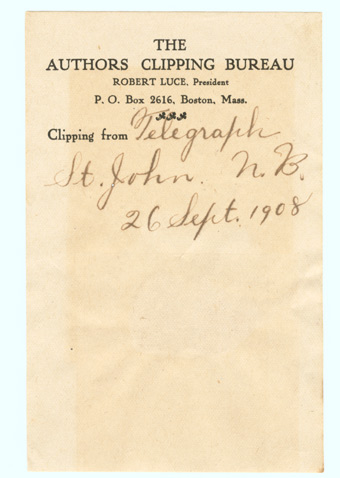 THE
AUTHORS CLIPPING BUREAU
ROBERT LUCE, President
P. O. Box 2616, Boston, Mass.
Clipping from Telegraph
St. John. N.B.
26 Sept. 1908